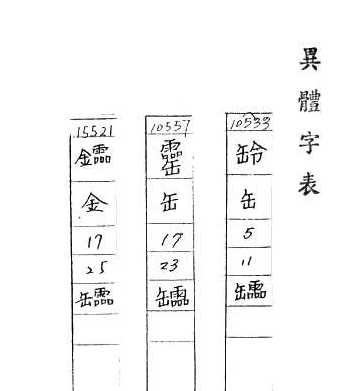 異體字表
10533
䍅
缶
5
11
10557
缶
17
23
15521
金
17
25